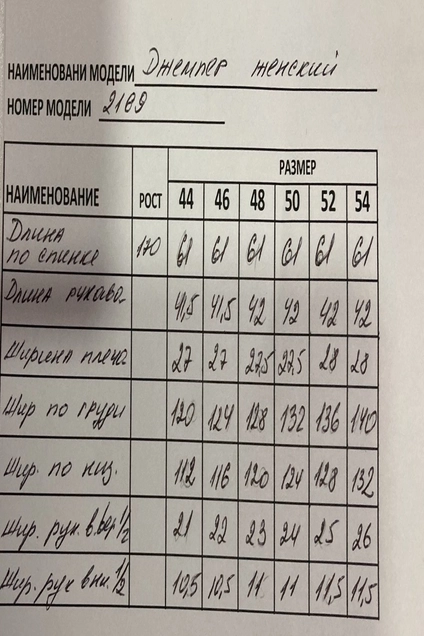 НАИМЕНОВАНИ МОДЕЛИ Джемпер женский
НОМЕР МОДЕЛИ 2169
РАЗМЕР
НАИМЕНОВАНИЕ РОСТ 44 46 48 50 52 54
Длина
по спинке 170 61 61 61 61 61 61
Длина рукава 41,5 41,5 42 42 42 42
Ширина плеча 27 27 27,5 27,5 28 28
Шир по груди 120 124 128 132 136 140
Шир. по низ. 112 116 120 124 128 132
Шир. рук. в.вер 1/2 21 22 23 24 25 26
Шир. рук вни. 1/2 10,5 10,5 11 11 11,5 11,5